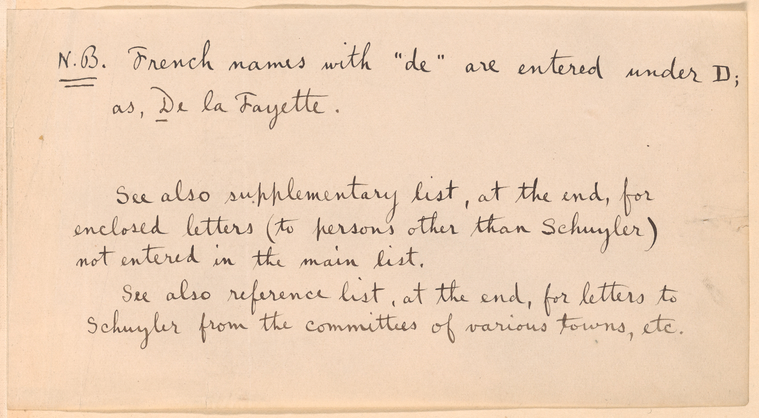 N.B. French names with "de" are entered under D;
as, De la Fayette.
See also supplementary list, at the end, for
enclosed letters (to persons other than Schuyler)
not entered in the main list.
See also reference list, at the end, for letters to
Schuyler from the committees of various towns, etc.